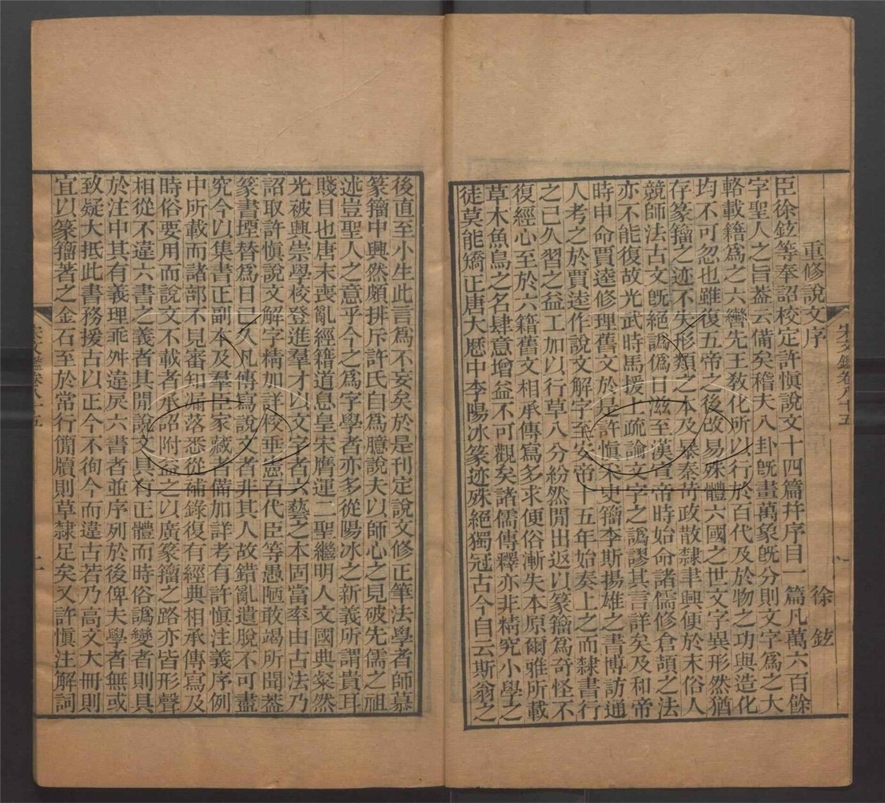 重修說文序
徐鉉
臣徐鉉等奉詔校定許愼說文十四篇幷序目一篇凡萬六百餘
字聖人之旨葢云備矣稽夫八卦旣畫萬象旣分則文字爲之大
輅載籍爲之六轡先王敎化所以行於百代及於物之功與造化
均不可忽也雖復五帝之後改易殊體六國之世文字異形然猶
存篆籀之迹不失形類之本及暴秦苛政散隸聿興便於末俗人
競師法古文旣絕譌僞日滋至漢宣帝時始命諸儒修倉頡之法
亦不能復故光武時馬援上疏論文字之譌謬其言詳矣及和帝
時申命賈逵修理舊文於是許愼采史籀李斯揚雄之書博訪通
人考之於賈逵作說文解字至安帝十五年始奏上之而隸書行
之已久習之益工加以行草八分紛然閒出返以篆籀爲奇怪不
復經心至於六籍舊文相承傳寫多求便俗漸失本原爾雅所載
草木魚鳥之名肆意增益不可觀矣諸儒傳釋亦非精究小學之
徒莫能矯正唐大曆中李陽冰篆迹殊絕獨冠古今自云斯翁之
宋文鑑卷八十五
一
後直至小生此言爲不妄矣於是刊定說文修正筆法學者師慕
篆籀中興然頗排斥許氏自爲臆說夫以師心之見破先儒之祖
述豈聖人之意乎今之爲字學者亦多從陽冰之新義所謂貴耳
賤目也唐末喪亂經籍道息皇宋膺運二聖繼明人文國典粲然
光被興崇學校登進羣才以文字者六藝之本固當率由古法乃
詔取許愼說文解字精加詳校垂憲百代臣等愚陋敢竭所聞葢
篆書堙替爲日已久凡傳寫說文者皆非其人故錯亂遺脫不可盡
究今以集書正副本及羣臣家藏者備加詳考有許愼注義序例
中所載而諸部不見審知漏落悉從補錄復有經典相承傳寫及
時俗要用而說文不載者承詔附益之以廣篆籀之路亦皆形聲
相從不違六書之義者其閒說文具有正體而時俗譌變者則具
於注中其有義理乖舛違戾六書者並序列於後俾夫學者無或
致疑大抵此書務援古以正今不徇今而違古若乃高文大冊則
宜以篆籀著之金石至於常行簡牘則草隸足矣又許愼注解詞
宋文鑑卷八十五
二